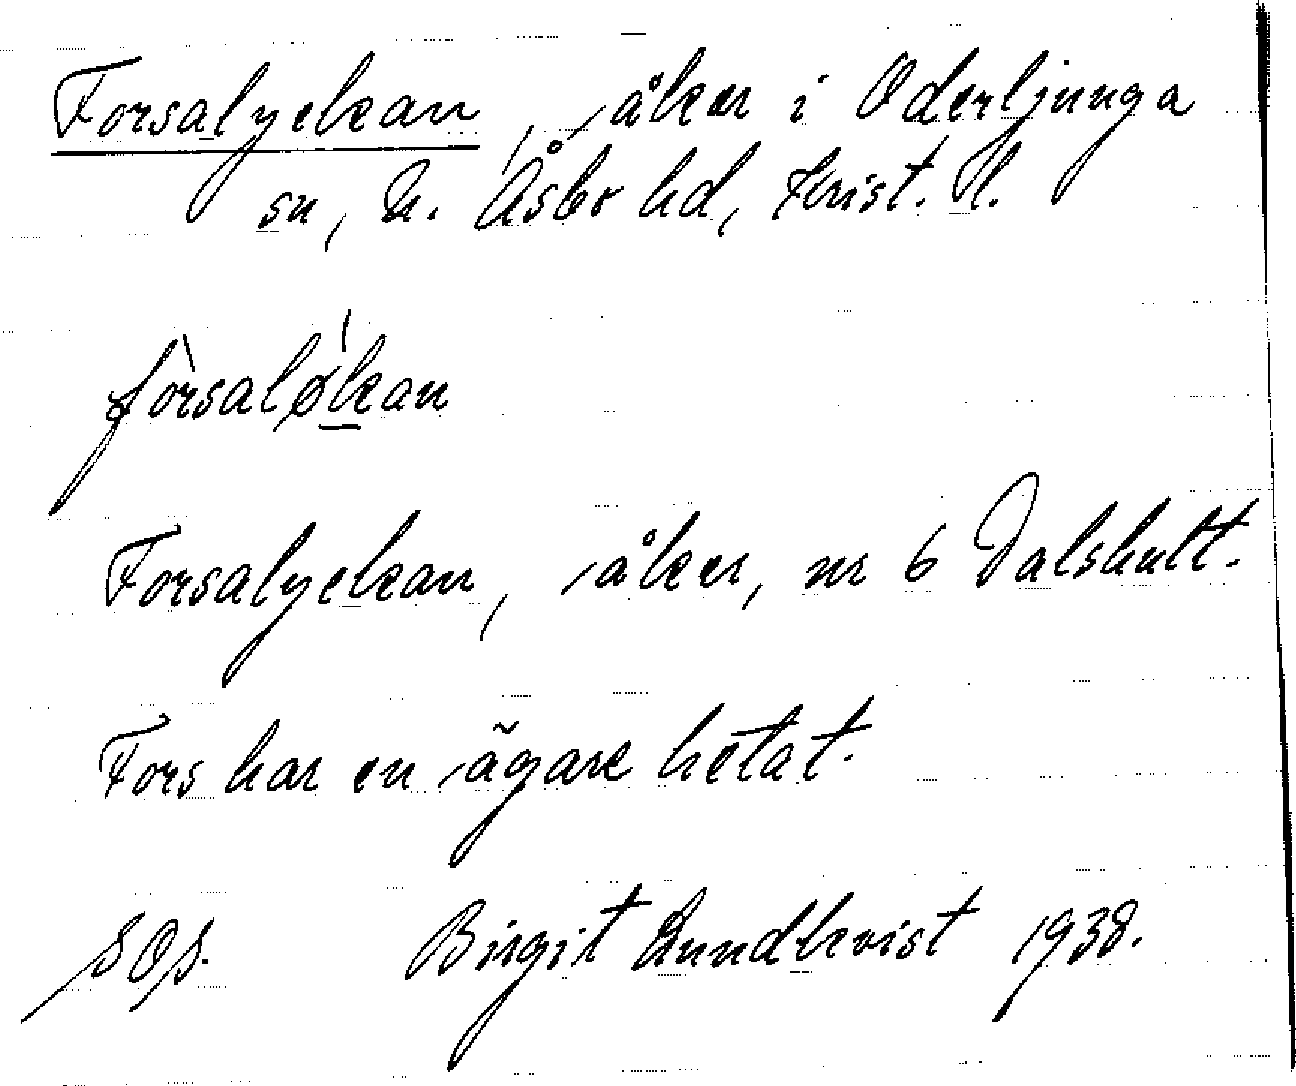 Forsalyckan, åker i Oderljunga
sn, N. Åsbo hd, Krist. l.
fòrsaløḱan
Forsalyckan, åker, nr 6 Dalshult.
Fors har en ägare hetat.
SOS. Birgit Lundkvist 1938.